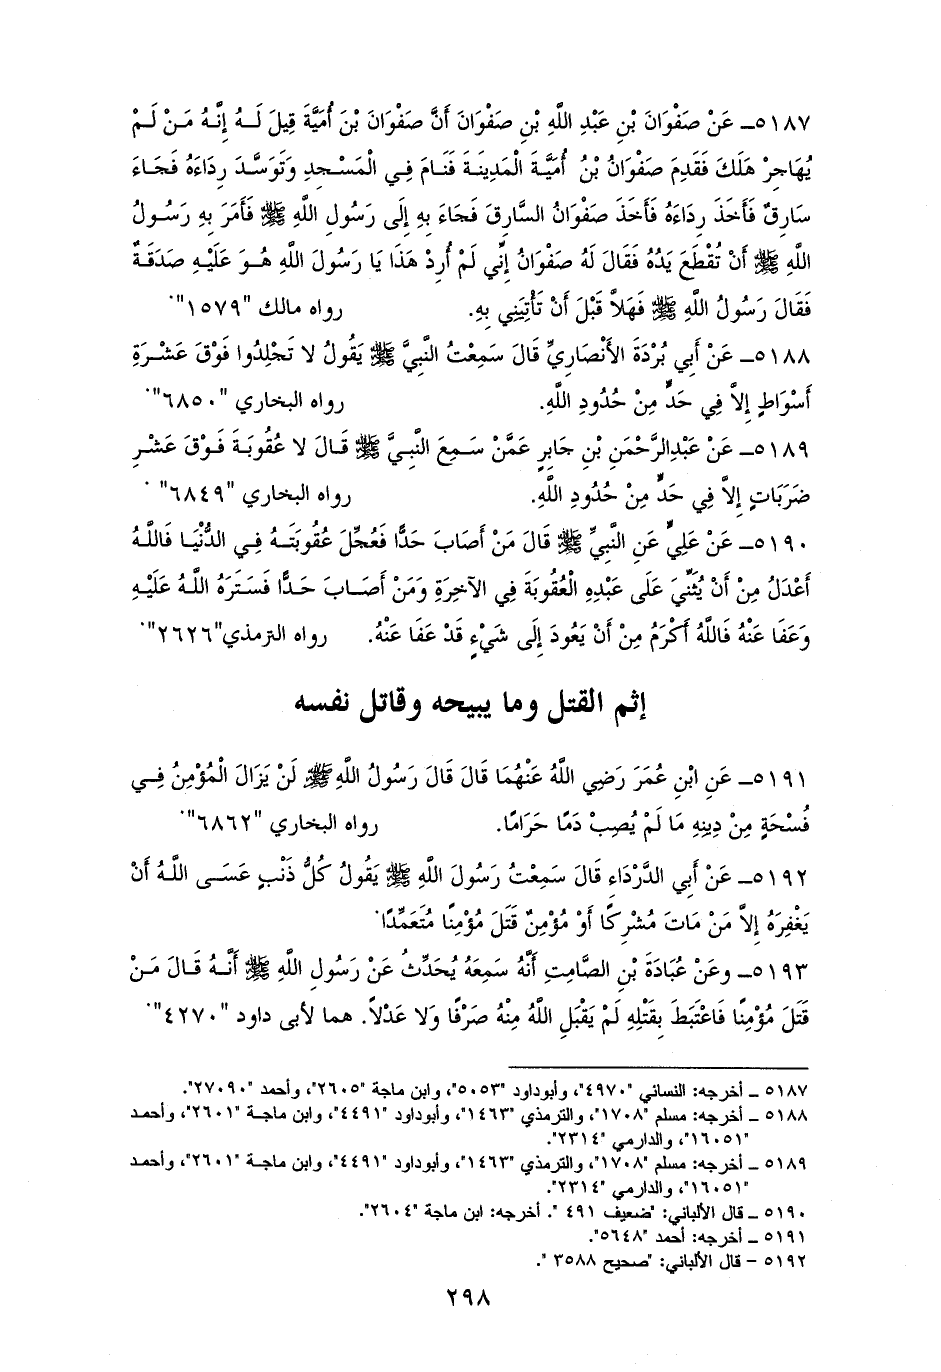 ٥١٨٧ـ عَنْ صَفْوَانَ بْنِ عَبْدِ اللَّهِ بْنِ صَفْوَانَ أَنَّ صَفْوَانَ بْنَ أُمَيَّةَ قِيلَ لَـهُ إِنَّـهُ مَـنْ لَـمْ
يُهَاجِرْ هَلَكَ فَقَدِمَ صَفْوَانُ بْنُ أُمَيَّةَ الْمَدِينَةَ فَنَامَ فِي الْمَسْجِدِ وَتَوَسَّدَ رِدَاءَهُ فَجَاءَ
سَارِقٌ فَأَخَذَ رِدَاءَهُ فَأَخَذَ صَفْوَانُ السَّارِقَ فَجَاءَ بِهِ إِلَى رَسُولِ اللَّهِ ﷺ فَأَمَرَ بِهِ رَسُـولُ
اللَّهِ ﷺ أَنْ تُقْطَعَ يَدُهُ فَقَالَ لَهُ صَفْوَانُ إِنِّي لَمْ أُرِدْ هَذَا يَا رَسُولَ اللَّهِ هُـوَ عَلَيْـهِ صَدَقَةٌ
فَقَالَ رَسُولُ اللَّهِ ﷺ فَهَلاَّ قَبْلَ أَنْ تَأْتِيَنِي بِهِ. رواه مالك "١٥٧٩".
٥١٨٨ـ عَنْ أَبِي بُرْدَةَ الأَنْصَارِيِّ قَالَ سَمِعْتُ النَّبِيَّ ﷺ يَقُولُ لا تَجْلِدُوا فَوْقَ عَشْـرَةِ
أَسْوَاطٍ إِلاَّ فِي حَدٍّ مِنْ حُدُودِ اللَّهِ. رواه البخاري "٦٨٥٠".
٥١٨٩ـ عَنْ عَبْدِالرَّحْمَنِ بْنِ جَابِرٍ عَمَّنْ سَـمِعَ النَّبِيَّ ﷺ قَـالَ لا عُقُوبَـةَ فَـوْقَ عَشْـرِ
ضَرَبَاتٍ إِلاَّ فِي حَدٍّ مِنْ حُدُودِ اللَّهِ. رواه البخاري "٦٨٤٩" .
٥١٩٠ـ عَنْ عَلِيٍّ عَنِ النَّبِيِّ ﷺ قَالَ مَنْ أَصَابَ حَدًّا فَعُجِّلَ عُقُوبَتَـهُ فِـي الدُّنْيَـا فَاللَّـهُ
أَعْدَلُ مِنْ أَنْ يُثَنِّيَ عَلَى عَبْدِهِ الْعُقُوبَةَ فِي الآخِرَةِ وَمَنْ أَصَـابَ حَـدًّا فَسَـتَرَهُ اللَّـهُ عَلَيْـهِ
وَعَفَا عَنْهُ فَاللَّهُ أَكْرَمُ مِنْ أَنْ يَعُودَ إِلَى شَيْءٍ قَدْ عَفَا عَنْهُ. رواه الترمذي"٢٦٢٦".
إثم القتل وما يبيحه وقاتل نفسه
٥١٩١ـ عَنِ ابْنِ عُمَرَ رَضِي اللَّهُ عَنْهُمَا قَالَ قَالَ رَسُولُ اللَّهِ ﷺ لَنْ يَزَالَ الْمُؤْمِنُ فِـي
فُسْحَةٍ مِنْ دِينِهِ مَا لَمْ يُصِبْ دَمًا حَرَامًا. رواه البخاري "٦٨٦٢".
٥١٩٢ـ عَنْ أَبِي الدَّرْدَاءِ قَالَ سَمِعْتُ رَسُولَ اللَّهِ ﷺ يَقُولُ كُلُّ ذَنْبٍ عَسَـى اللَّـهُ أَنْ
يَغْفِرَهُ إِلاَّ مَنْ مَاتَ مُشْرِكًا أَوْ مُؤْمِنٌ قَتَلَ مُؤْمِنًا مُتَعَمِّدًا.
٥١٩٣ـ وعَنْ عُبَادَةَ بْنِ الصَّامِتِ أَنَّهُ سَمِعَهُ يُحَدِّثُ عَنْ رَسُولِ اللَّهِ ﷺ أَنَّـهُ قَـالَ مَـنْ
قَتَلَ مُؤْمِنًا فَاعْتَبَطَ بِقَتْلِهِ لَمْ يَقْبَلِ اللَّهُ مِنْهُ صَرْفًا وَلا عَدْلاً. هما لأبى داود "٤٢٧٠".
٥١٨٧ ـ أخرجه: النسائي "٤٩٧٠"، وأبوداود "٥٠٥٣"، وابن ماجة "٢٦٠٥"، وأحمد "٢٧٠٩٠".
٥١٨٨ ـ أخرجه: مسلم "١٧٠٨"، والترمذي "١٤٦٣"، وأبوداود "٤٤٩١"، وابن ماجـة "٢٦٠١"، وأحمـد
"١٦٠٥١"، والدارمي "٢٣١٤".
٥١٨٩ ـ أخرجه: مسلم "١٧٠٨"، والترمذي "١٤٦٣"، وأبوداود "٤٤٩١"، وابن ماجـة "٢٦٠١"، وأحمـد
"١٦٠٥١"، والدارمي "٢٣١٤".
٥١٩٠ ـ قال الألباني: "ضعيف ٤٩١ ". أخرجه: ابن ماجة "٢٦٠٤".
٥١٩١ ـ أخرجه: أحمد "٥٦٤٨".
٥١٩٢ - قال الألباني: "صحيح ٣٥٨٨ ".
٢٩٨